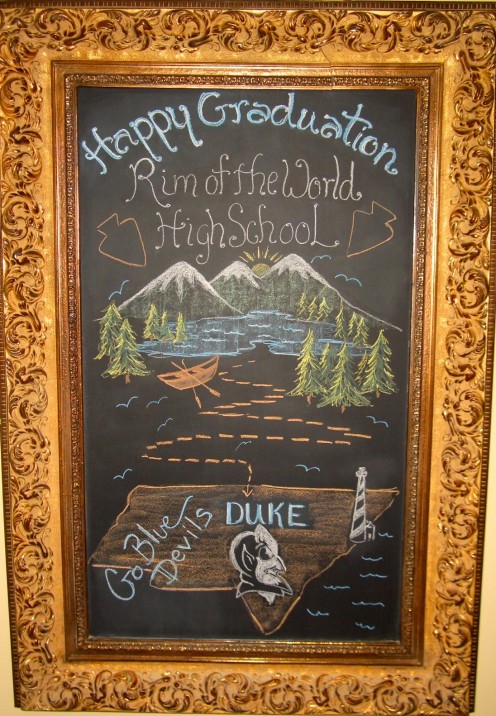 Happy Graduation
Rim of the World
High School
DUKE
Go Blue
Devils